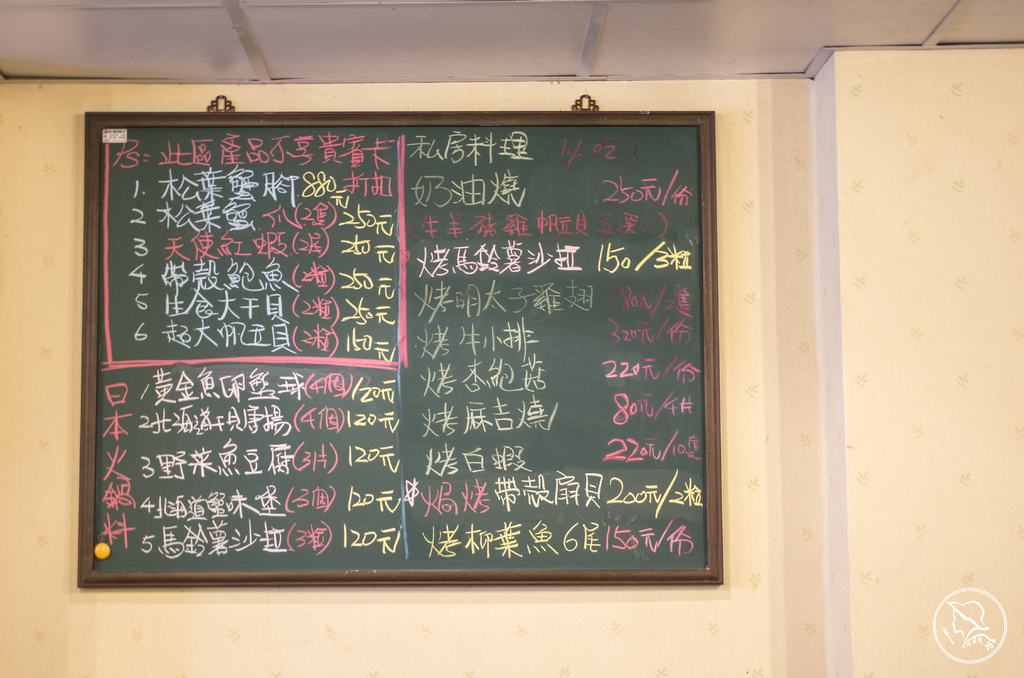 此區產品不享貴賓卡折扣
1. 松葉蟹腳 880元
2 松葉蟹爪(2隻) 250元
3 天使紅蝦(2尾) 250元
4 帶殼鮑魚(2粒) 250元
5 生食大干貝(2粒) 250元
6 起大帆立貝(2粒) 150元
日本火鍋料
1 黃金魚卵蟹球(4個) 120元
2 北海道干貝唐揚(4個) 120元
3 野菜魚豆腐(3片) 120元
4 北海道蟹味堡(3個) 120元
5 馬鈴薯沙拉(3粒) 120元
私房料理
奶油燒 250元/份
(牛羊豬雞帆立貝五選一)
烤馬鈴薯沙拉 150/3粒
烤明太子雞翅 180元/2隻
烤牛小排 320元/份
烤杏鮑菇 220元/份
烤麻吉燒 80元/4片
烤白蝦 220元/10隻
焗烤帶殼扇貝 200元/2粒
烤柳葉魚6尾 150元/份